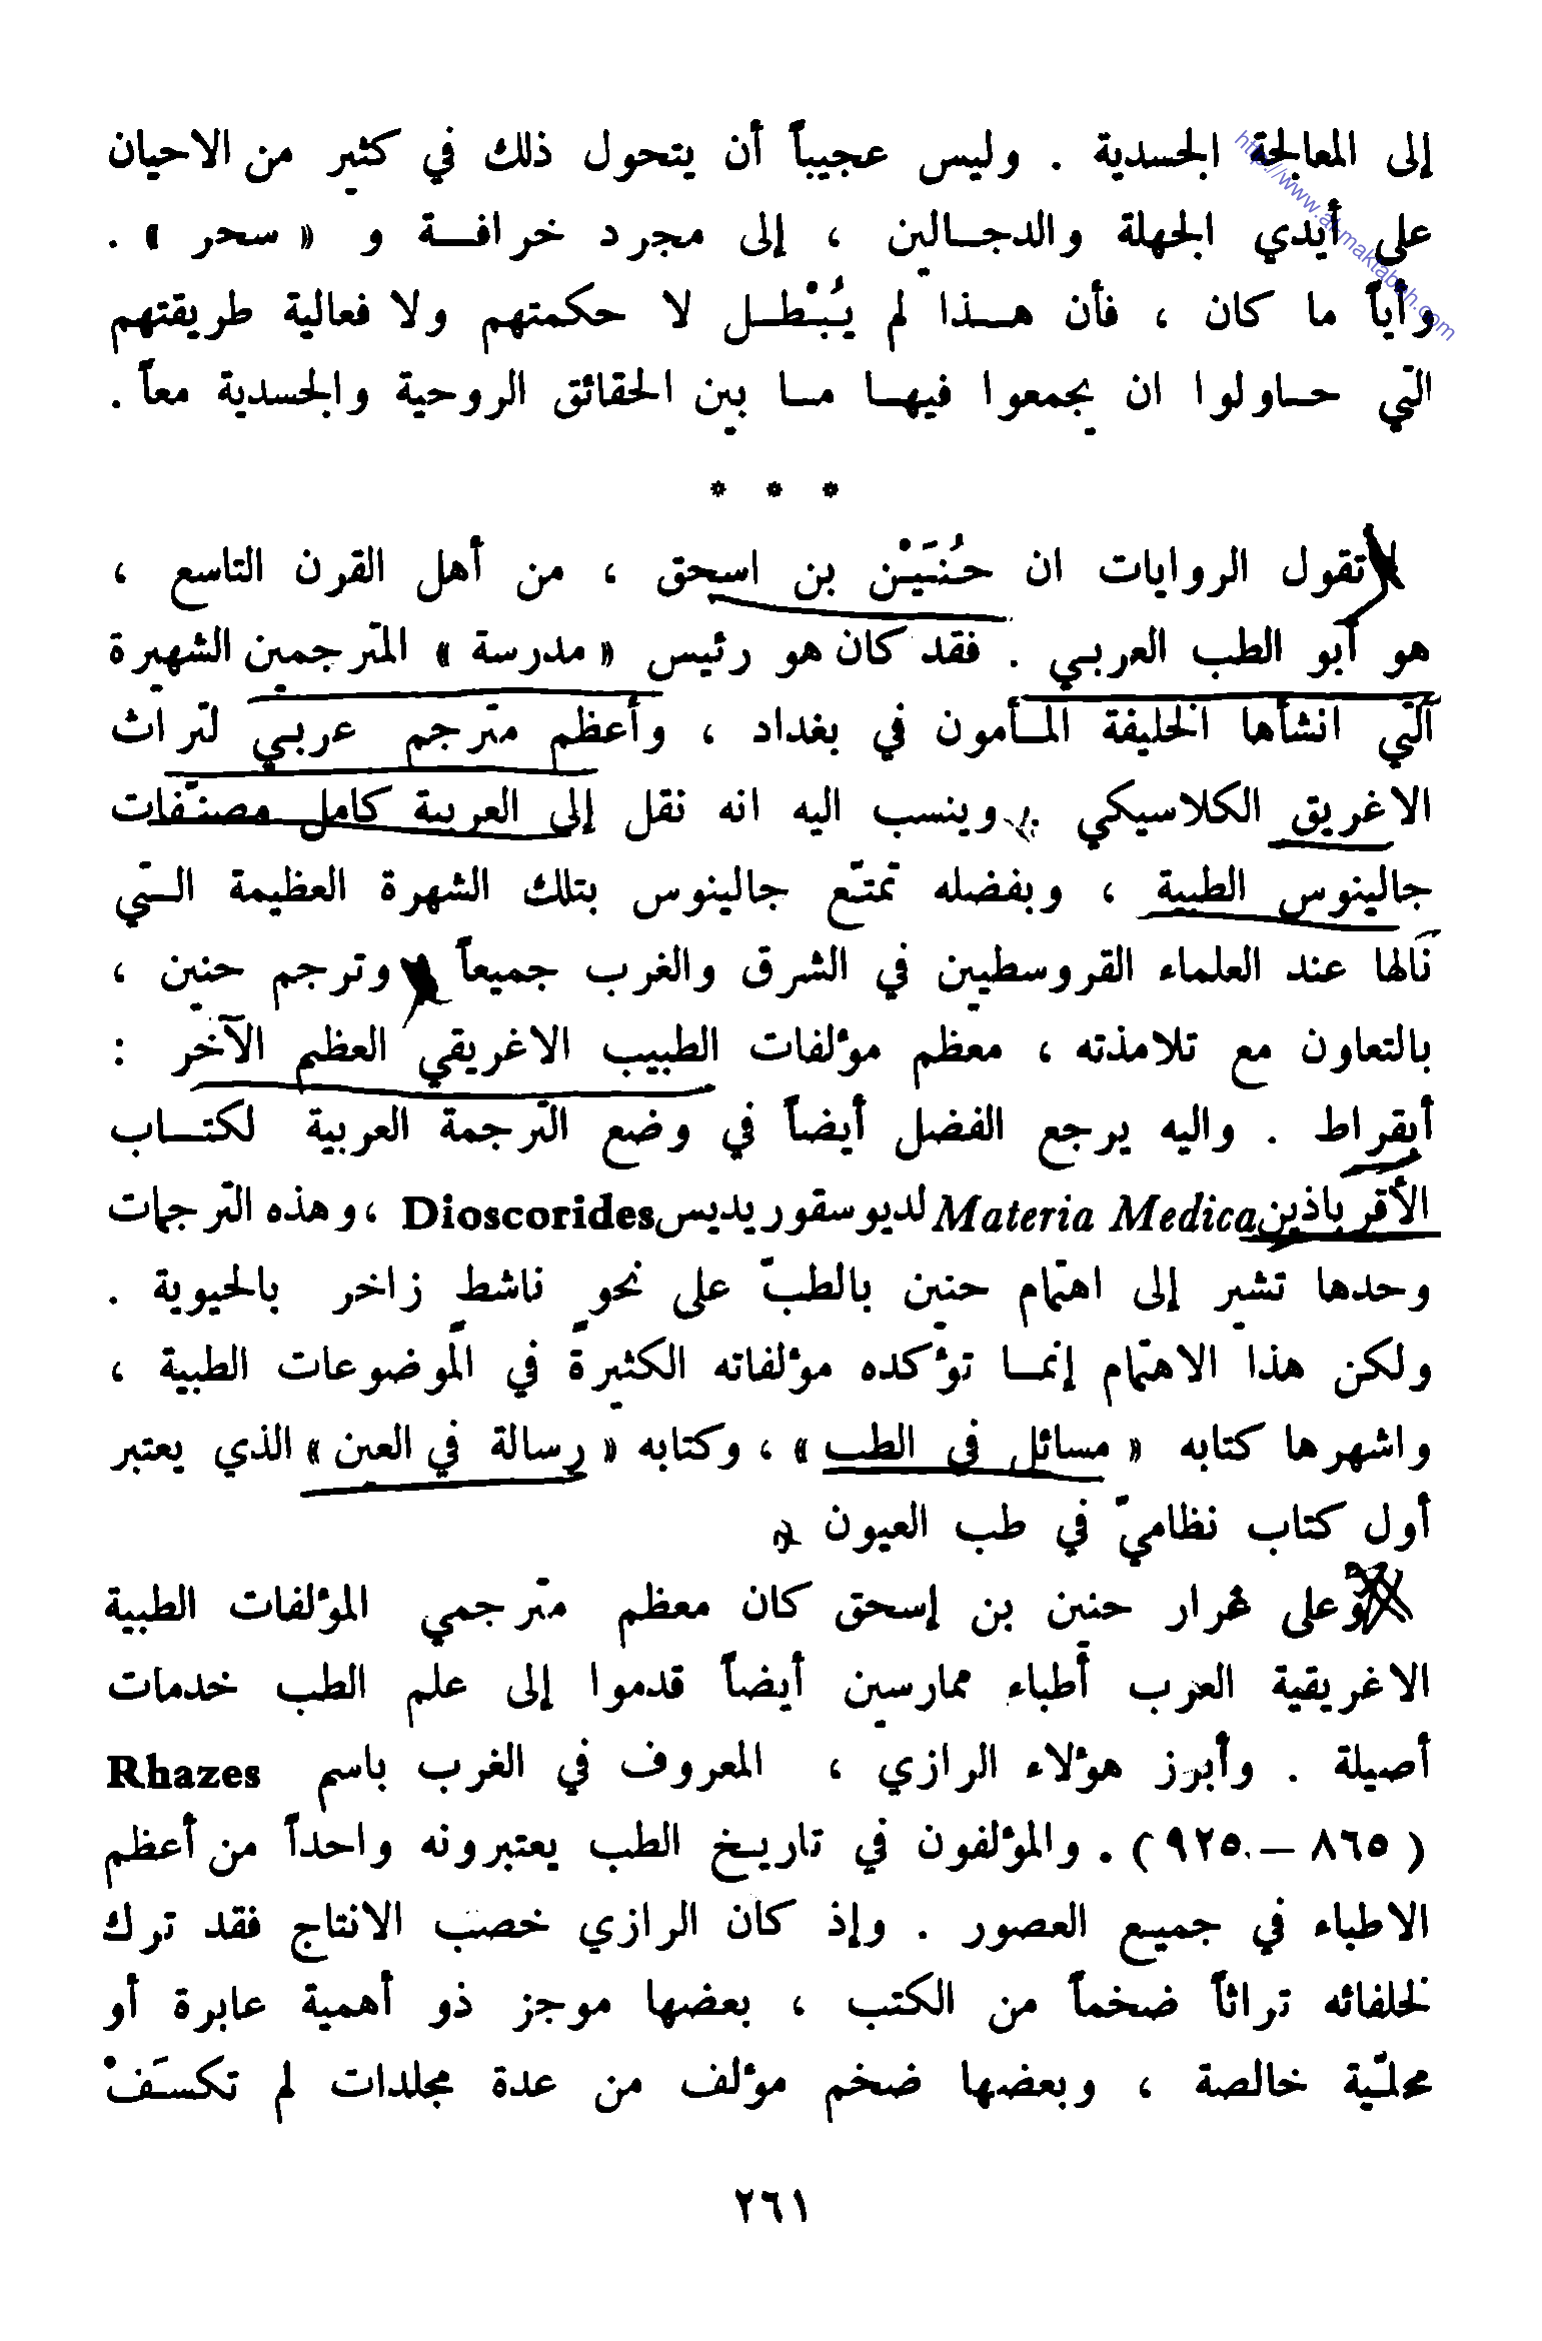 إلى المعالجة الجسدية . وليس عجيباً أن يتحول ذلك في كثير من الاحيان
على أيدي الجهلة والدجـالين ، إلى مجرد خرافـة و « سحر » .
وأياً ما كان ، فأن هـذا لم يُبْطـل لا حكمتهم ولا فعالية طريقتهم
التي حـاولوا ان يجمعوا فيهـا مـا بين الحقائق الروحية والجسدية معاً .
* * *
تقول الروايات ان حُنَيْن بن اسحق ، من أهل القرن التاسع ،
هو أبو الطب العربي . فقد كان هو رئيس « مدرسة » المترجمين الشهيرة
التي انشأها الخليفة المـأمون في بغداد ، وأعظم مترجم عربي لتراث
الاغريق الكلاسيكي . وينسب اليه انه نقل إلى العربية كامل مصنّفات
جالينوس الطبية ، وبفضله تمتّع جالينوس بتلك الشهرة العظيمة الـتي
نَالها عند العلماء القروسطيين في الشرق والغرب جميعاً وترجم حنين ،
بالتعاون مع تلامذته ، معظم مؤلفات الطبيب الاغريقي العظيم الآخر :
أبقراط . واليه يرجع الفضل أيضاً في وضع الترجمة العربية لكتـاب
الأقرباذين Materia Medica لديوسقوريديس Dioscorides ، وهذه الترجمات
وحدها تشير إلى اهتمام حنين بالطبّ على نحوٍ ناشطٍ زاخر بالحيوية .
ولكن هذا الاهتمام إنمـا تؤكده مؤلفاته الكثيرة في الموضوعات الطبية ،
واشهرها كتابه « مسائل في الطب » ، وكتابه « رسالة في العين » الذي يعتبر
أول كتاب نظاميّ في طب العيون
وعلى غرار حنين بن إسحق كان معظم مترجمي المؤلفات الطبية
الاغريقية العرب أطباء ممارسين أيضاً قدموا إلى علم الطب خدمات
أصيلة . وأبرز هؤلاء الرازي ، المعروف في الغرب باسم Rhazes
( ٨٦٥ – ٩٢٥ ) . والمؤلفون في تاريخ الطب يعتبرونه واحداً من أعظم
الاطباء في جميع العصور . وإذ كان الرازي خصب الانتاج فقد ترك
لخلفائه تراثاً ضخماً من الكتب ، بعضها موجز ذو أهمية عابرة أو
محلـّية خالصة ، وبعضها ضخم مؤلف من عدة مجلدات لم تكسَفْ
٢٦١
http://www.al-maktabeh.com